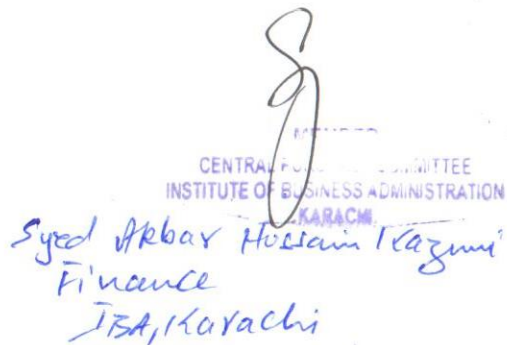 MEMBER
CENTRAL COMMITTEE
INSTITUTE OF BUSINESS ADMINISTRATION
KARACHI
Syed Akbar Hussain Kazmi
Finance
IBA, Karachi